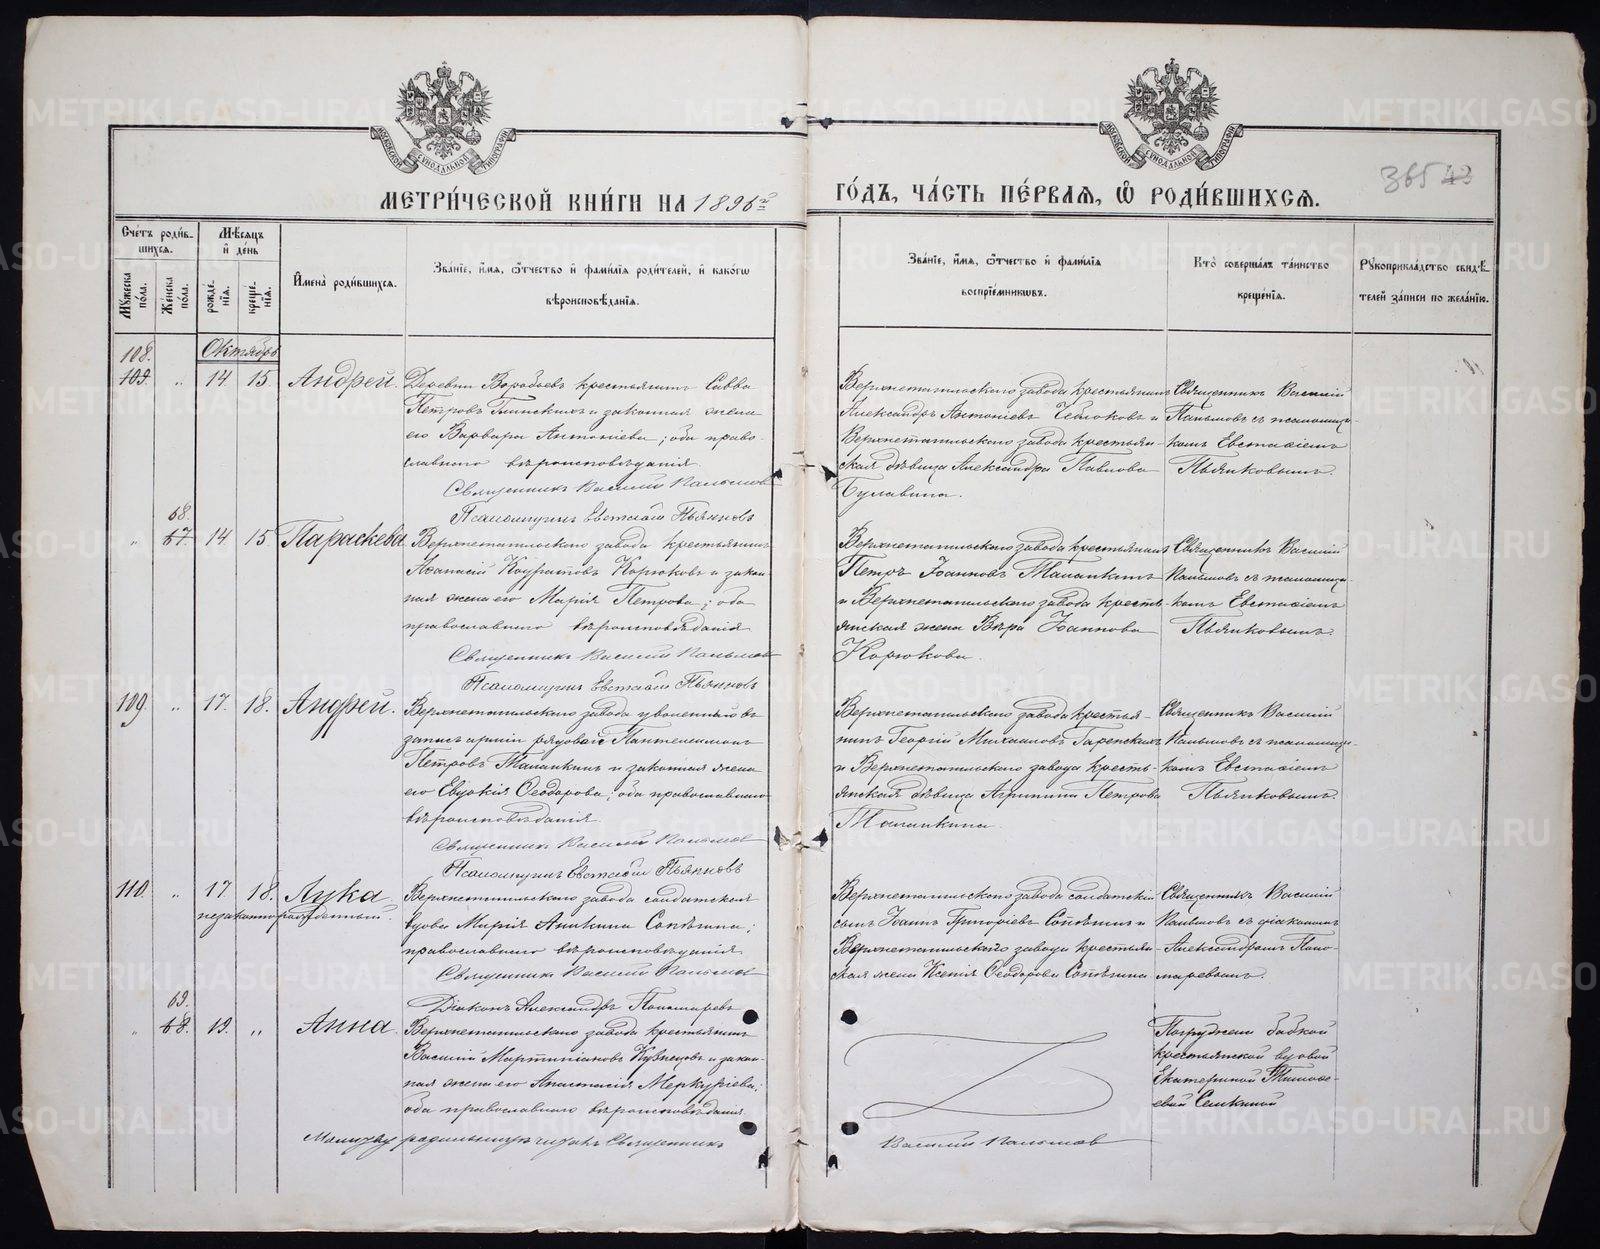 МОСКОВСКОЙ СѴНОДАЛЬНОЙ ТИПОГРАФІИ
МОСКОВСКОЙ СѴНОДАЛЬНОЙ ТИПОГРАФІИ
365 43
МЕТРИ́ЧЕСКОЙ КНИ́ГИ НА 1896й
ГО́ДЪ, ЧА́СТЬ ПЕ́РВАЯ, Ѽ РОДИ́ВШИХСЯ.
Сче́тъ роди́в-
шихся.
Мѣ́сяцъ
и҆ де́нь
Мꙋ́жеска
по́ла.
Же́нска
по́ла.
рожде́-
нїя.
креще́-
нїя.
И҆мена̀ роди́вшихся.
Зва́нїе, и҆́мя, ѻ҆́тчество и҆ фами́лїя роди́телей, и҆ како́гѡ
вѣроисповѣ́данїя.
Зва́нїе, и҆́мя, ѻ҆́тчество и҆ фами́лїя
воспрїе́мникѡвъ.
Кто̀ соверша́лъ та́инство
креще́нїя.
Рꙋкоприкла́дство свидѣ́-
телей за́писи по жела́нїю.
Октябрь
108.
109. „ 14 15 Андрей.
Деревни Воробьевъ крестьянинъ Савва
Петровъ Глинскихъ и законная жена
его Варвара Антоніева; оба право-
славнаго вѣроисповѣданія
Священникъ Василій Пальмовъ
Псаломщикъ Евстафій Пьянковъ
Верхнетагильскаго завода крестьянинъ
Александръ Антоніевъ Чеблоковъ и
Верхнетагильскаго завода крестьян-
ская дѣвица Александра Павлова
Булавина.
Священникъ Василій
Пальмовъ съ псаломщи-
комъ Евстафіемъ
Пьянковымъ.
68.
„ 67. 14 15 Параскева
Верхнетагильскаго завода крестьянинъ
Афанасій Кодратовъ Корюковъ и закон-
ная жена его Марія Петрова; оба
православнаго вѣроисповѣданія
Священникъ Василій Пальмовъ
Псаломщикъ Евстафій Пьянковъ
Верхнетагильскаго завода крестьянинъ
Петръ Іоанновъ Маланкинъ
и Верхнетагильскаго завода кресть-
янская жена Вѣра Іоаннова
Корюкова.
Священникъ Василій
Пальмовъ съ псаломщи-
комъ Евстафіемъ
Пьянковымъ.
109. „ 17. 18. Андрей.
Верхнетагильскаго завода уволенный въ
запасъ арміи рядовой Пантелеимонъ
Петровъ Маланкинъ и законная жена
его Евдокія Ѳеодорова; оба православнаго
вѣроисповѣданія.
Священникъ Василій Пальмовъ
Псаломщикъ Евстафій Пьянковъ
Верхнетагильскаго завода крестья-
нинъ Георгій Михаиловъ Гаренскихъ
и Верхнетагильскаго завода кресть-
янская дѣвица Агрипина Петрова
Маланкина.
Священникъ Василій
Пальмовъ съ псаломщи-
комъ Евстафіемъ
Пьянковымъ.
110. „ 17 18. Лука
незаконнорожденный.
Верхнетагильскаго завода солдатская
вдова Марія Аникина Сопѣгина;
православнаго вѣроисповѣданія
Священникъ Василій Пальмовъ
Діаконъ Александръ Пономаревъ
Верхнетагильскаго завода солдатскій
сынъ Іоаннъ Григоріевъ Сопѣгинъ и
Верхнетагильскаго завода крестьян-
ская жена Ксенія Ѳеодорова Сопѣгина
Священникъ Василій
Пальмовъ съ діакономъ
Александромъ Поно-
маревымъ.
69.
„ 68. 19. „ Анна.
Верхнетагильскаго завода крестьянинъ
Василій Мартиніановъ Кузнецовъ и закон-
ная жена его Анастасія Меркуріева;
оба православнаго вѣроисповѣданія
Погружена бабкой
крестьянской вдовой
Екатериной Тимофе-
евой Семкиной
Молитву родильницѣ читалъ Священникъ
Василій Пальмовъ